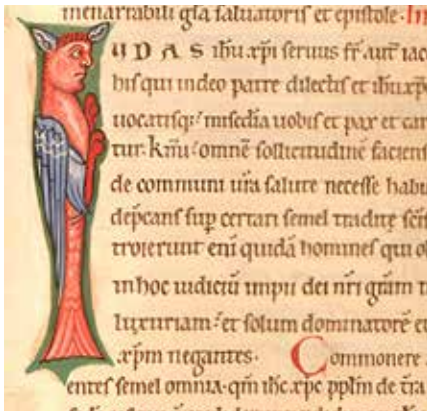 menarrabili gła saluatoris et epistole. In
IUDAS ihu xpi seruus fr̄. aut̄ iac
his qui in deo patre dilectis et ihu xp
uocatisq; misedia uobis et pax et car
tur. km̄i omnē sollicitudinē faciens
de communi ura salute necesse habu
dep̄cans sup certari semel tradite sc̄i
troierunt eni quidā homines qui ol
in hoc iudiciū impii dei nr̄i grām t
luxuriam. et solum dominatorē et
xp̄m negantes. Commonere
entes semel omnia. qm̄ ihc xpc pplm̄ de tra